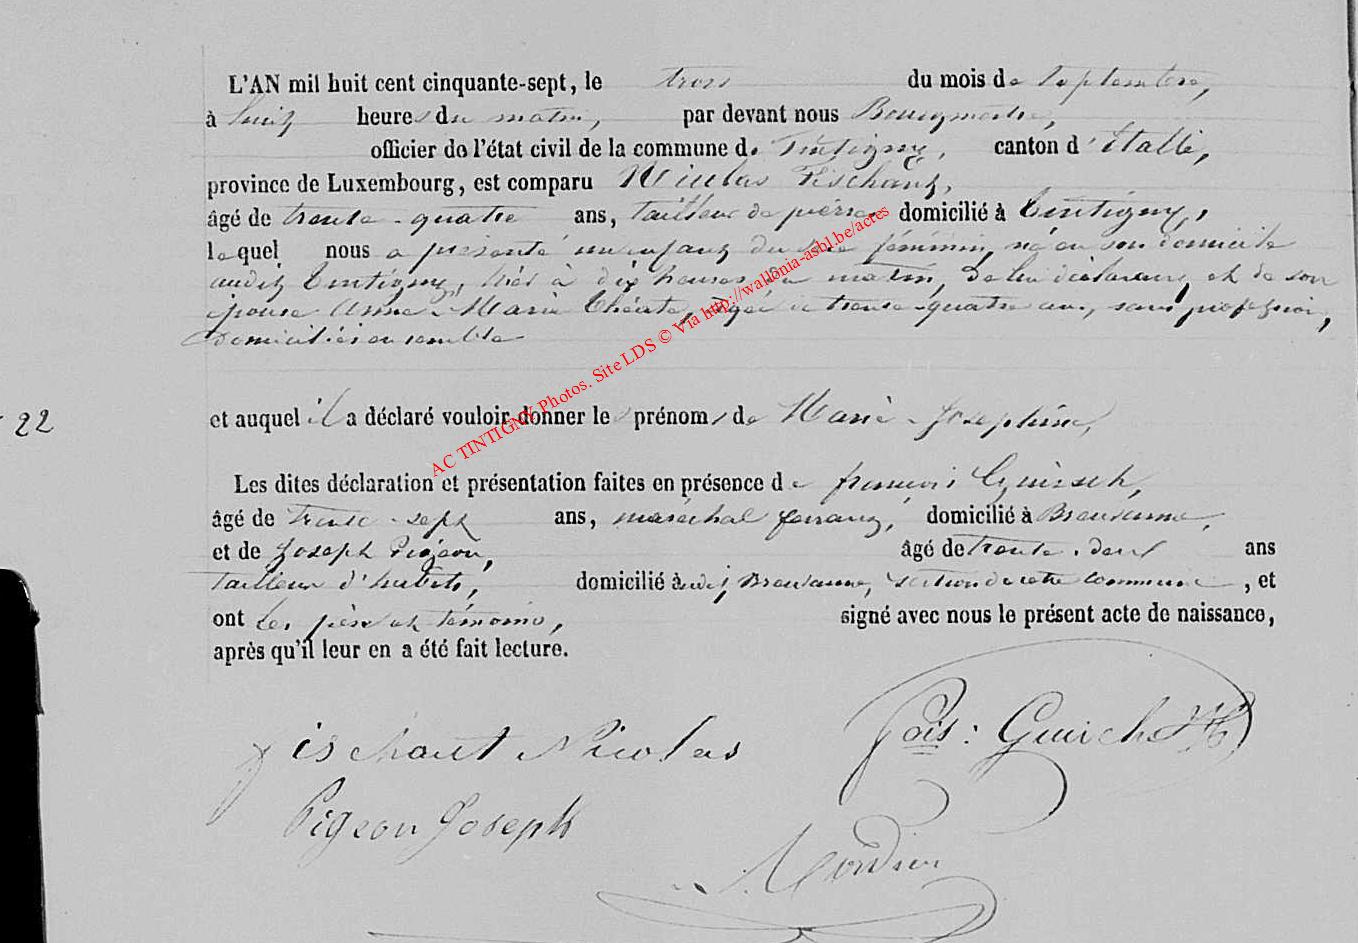 L'AN mil huit cent cinquante-sept, le trois du mois de Septembre,
à huit heures du matin, par devant nous Bourgmestre,
officier de l'état civil de la commune de Tintigny, canton d'Etalle,
province de Luxembourg, est comparu Nicolas Fischaut,
âgé de trente-quatre ans, tailleur de pierre domicilié à Tintigny,
lequel nous a présenté un enfant du sexe féminin, né en son domicile
audit Tintigny, hier à dix heures du matin, de lui déclarant, et de son
épouse Anne-Marie Thérèse, âgée de trente-quatre ans, sans profession,
domiciliés ensemble
22 et auquel il a déclaré vouloir donner les prénoms de Marie-Joséphine,
Les dites déclaration et présentation faites en présence de françois
âgé de Trente-sept ans, maréchal ferrant, domicilié à
et de Joseph Pigeon, âgé de trente-deux ans
tailleur d'habits, domicilié audit section de cette commune, et
ont les père et témoins, signé avec nous le présent acte de naissance,
après qu'il leur en a été fait lecture.
fischaut Nicolas
fçois: Guirch
Pigeon Joseph
AC TINTIGNY Photos. Site LDS © Via http://wallonia-asbl.be/acres